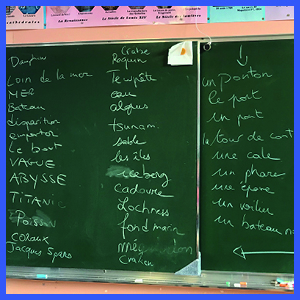 La Renaissance
Le Siècle de Louis XIV
Dauphin
Loin de la mer
MER
Bateau
disparition
emporter
Le bout
VAGUE
ABYSSE
TITANIC
Poisson
Coraux
Jacques Sparo
Requin
Tempête
eau
algues
tsunami
sable
les îles
iceberg
cadavre
Lochness
fond marin
un ponton
le port
un port
la tour de cont
une cale
un phare
une épave
un voilier
un bateau